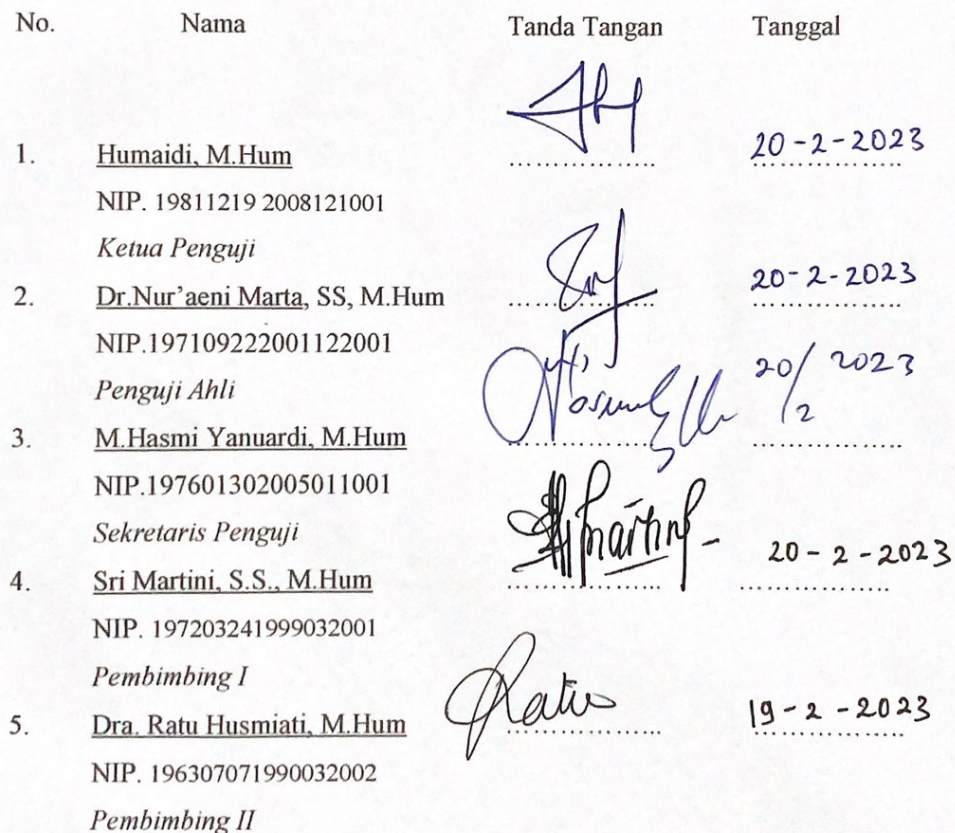 No. Nama Tanda Tangan Tanggal
1. Humaidi, M.Hum .................. 20-2-2023
NIP. 19811219 2008121001
Ketua Penguji
2. Dr.Nur'aeni Marta, SS, M.Hum .................. 20-2-2023
NIP.197109222001122001
Penguji Ahli
20/2 2023
3. M.Hasmi Yanuardi, M.Hum .................. ..................
NIP.197601302005011001
Sekretaris Penguji
Martini - 20-2-2023
4. Sri Martini, S.S., M.Hum .................. ..................
NIP. 197203241999032001
Pembimbing I
5. Dra. Ratu Husmiati, M.Hum Ratu .................. 19-2-2023
NIP. 196307071990032002
Pembimbing II